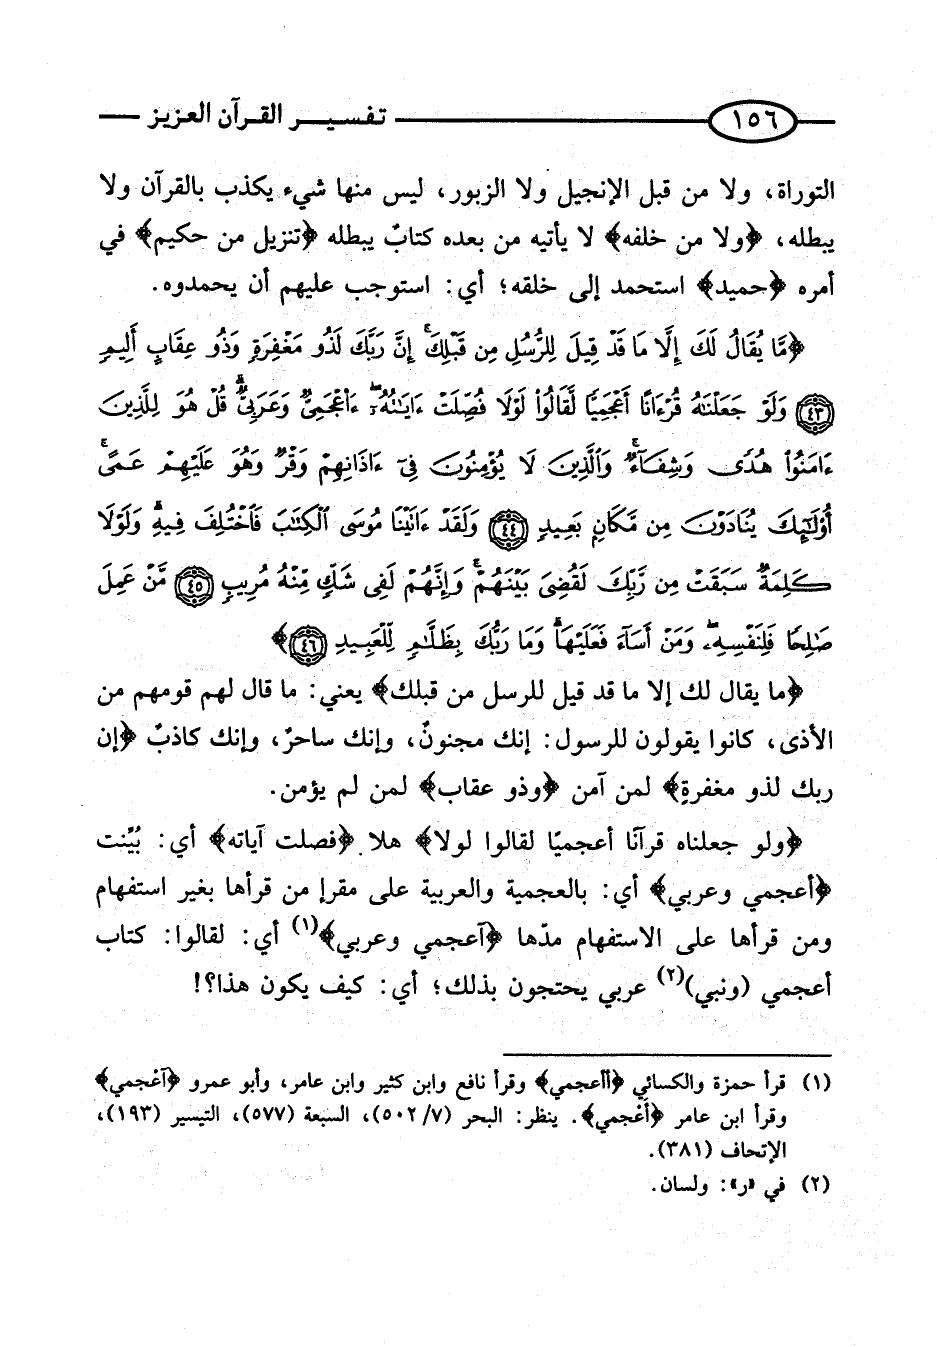 ١٥٦ تفسير القرآن العزيز
التوراة، ولا من قبل الإنجيل ولا الزبور، ليس منها شيء يكذب بالقرآن ولا
يبطله، ﴿ولا من خلفه﴾ لا يأتيه من بعده كتابٌ يبطله ﴿تنزيل من حكيم﴾ في
أمره ﴿حميد﴾ استحمد إلى خلقه؛ أي: استوجب عليهم أن يحمدوه.
﴿مَّا يُقَالُ لَكَ إِلَّا مَا قَدْ قِيلَ لِلرُّسُلِ مِن قَبْلِكَ ۚ إِنَّ رَبَّكَ لَذُو مَغْفِرَةٍ وَذُو عِقَابٍ أَلِيمٍ
٤٣ وَلَوْ جَعَلْنَٰهُ قُرْءَانًا أَعْجَمِيًّا لَّقَالُوا۟ لَوْلَا فُصِّلَتْ ءَايَٰتُهُۥٓ ۖ ءَا۬عْجَمِىٌّ وَعَرَبِىٌّ ۗ قُلْ هُوَ لِلَّذِينَ
ءَامَنُوا۟ هُدًى وَشِفَآءٌ ۖ وَٱلَّذِينَ لَا يُؤْمِنُونَ فِىٓ ءَاذَانِهِمْ وَقْرٌ وَهُوَ عَلَيْهِمْ عَمًى ۚ
أُو۟لَٰٓئِكَ يُنَادَوْنَ مِن مَّكَانٍۭ بَعِيدٍ ٤٤ وَلَقَدْ ءَاتَيْنَا مُوسَى ٱلْكِتَٰبَ فَٱخْتُلِفَ فِيهِ ۗ وَلَوْلَا
كَلِمَةٌ سَبَقَتْ مِن رَّبِّكَ لَقُضِىَ بَيْنَهُمْ ۚ وَإِنَّهُمْ لَفِى شَكٍّ مِّنْهُ مُرِيبٍ ٤٥ مَّنْ عَمِلَ
صَٰلِحًا فَلِنَفْسِهِۦ ۖ وَمَنْ أَسَآءَ فَعَلَيْهَا ۗ وَمَا رَبُّكَ بِظَلَّٰمٍ لِّلْعَبِيدِ ٤٦﴾
﴿ما يقال لك إلا ما قد قيل للرسل من قبلك﴾ يعني: ما قال لهم قومهم من
الأذى، كانوا يقولون للرسول: إنك مجنونٌ، وإنك ساحرٌ، وإنك كاذبٌ ﴿إن
ربك لذو مغفرةٍ﴾ لمن آمن ﴿وذو عقاب﴾ لمن لم يؤمن.
﴿ولو جعلناه قرآنًا أعجميًا لقالوا لولا﴾ هلا ﴿فصلت آياته﴾ أي: بُيِّنت
﴿أعجمي وعربي﴾ أي: بالعجمية والعربية على مقرإ من قرأها بغير استفهام
ومن قرأها على الاستفهام مدّها ﴿آعجمي وعربي﴾(١) أي: لقالوا: كتاب
أعجمي (ونبي)(٢) عربي يحتجون بذلك؛ أي: كيف يكون هذا؟!
(١) قرأ حمزة والكسائي ﴿أأعجمي﴾ وقرأ نافع وابن كثير وابن عامر، وأبو عمرو ﴿آعْجمي﴾
وقرأ ابن عامر ﴿أَعْجمي﴾. ينظر: البحر (٧/ ٥٠٢)، السبعة (٥٧٧)، التيسير (١٩٣)،
الإتحاف (٣٨١).
(٢) في «ر»: ولسان.